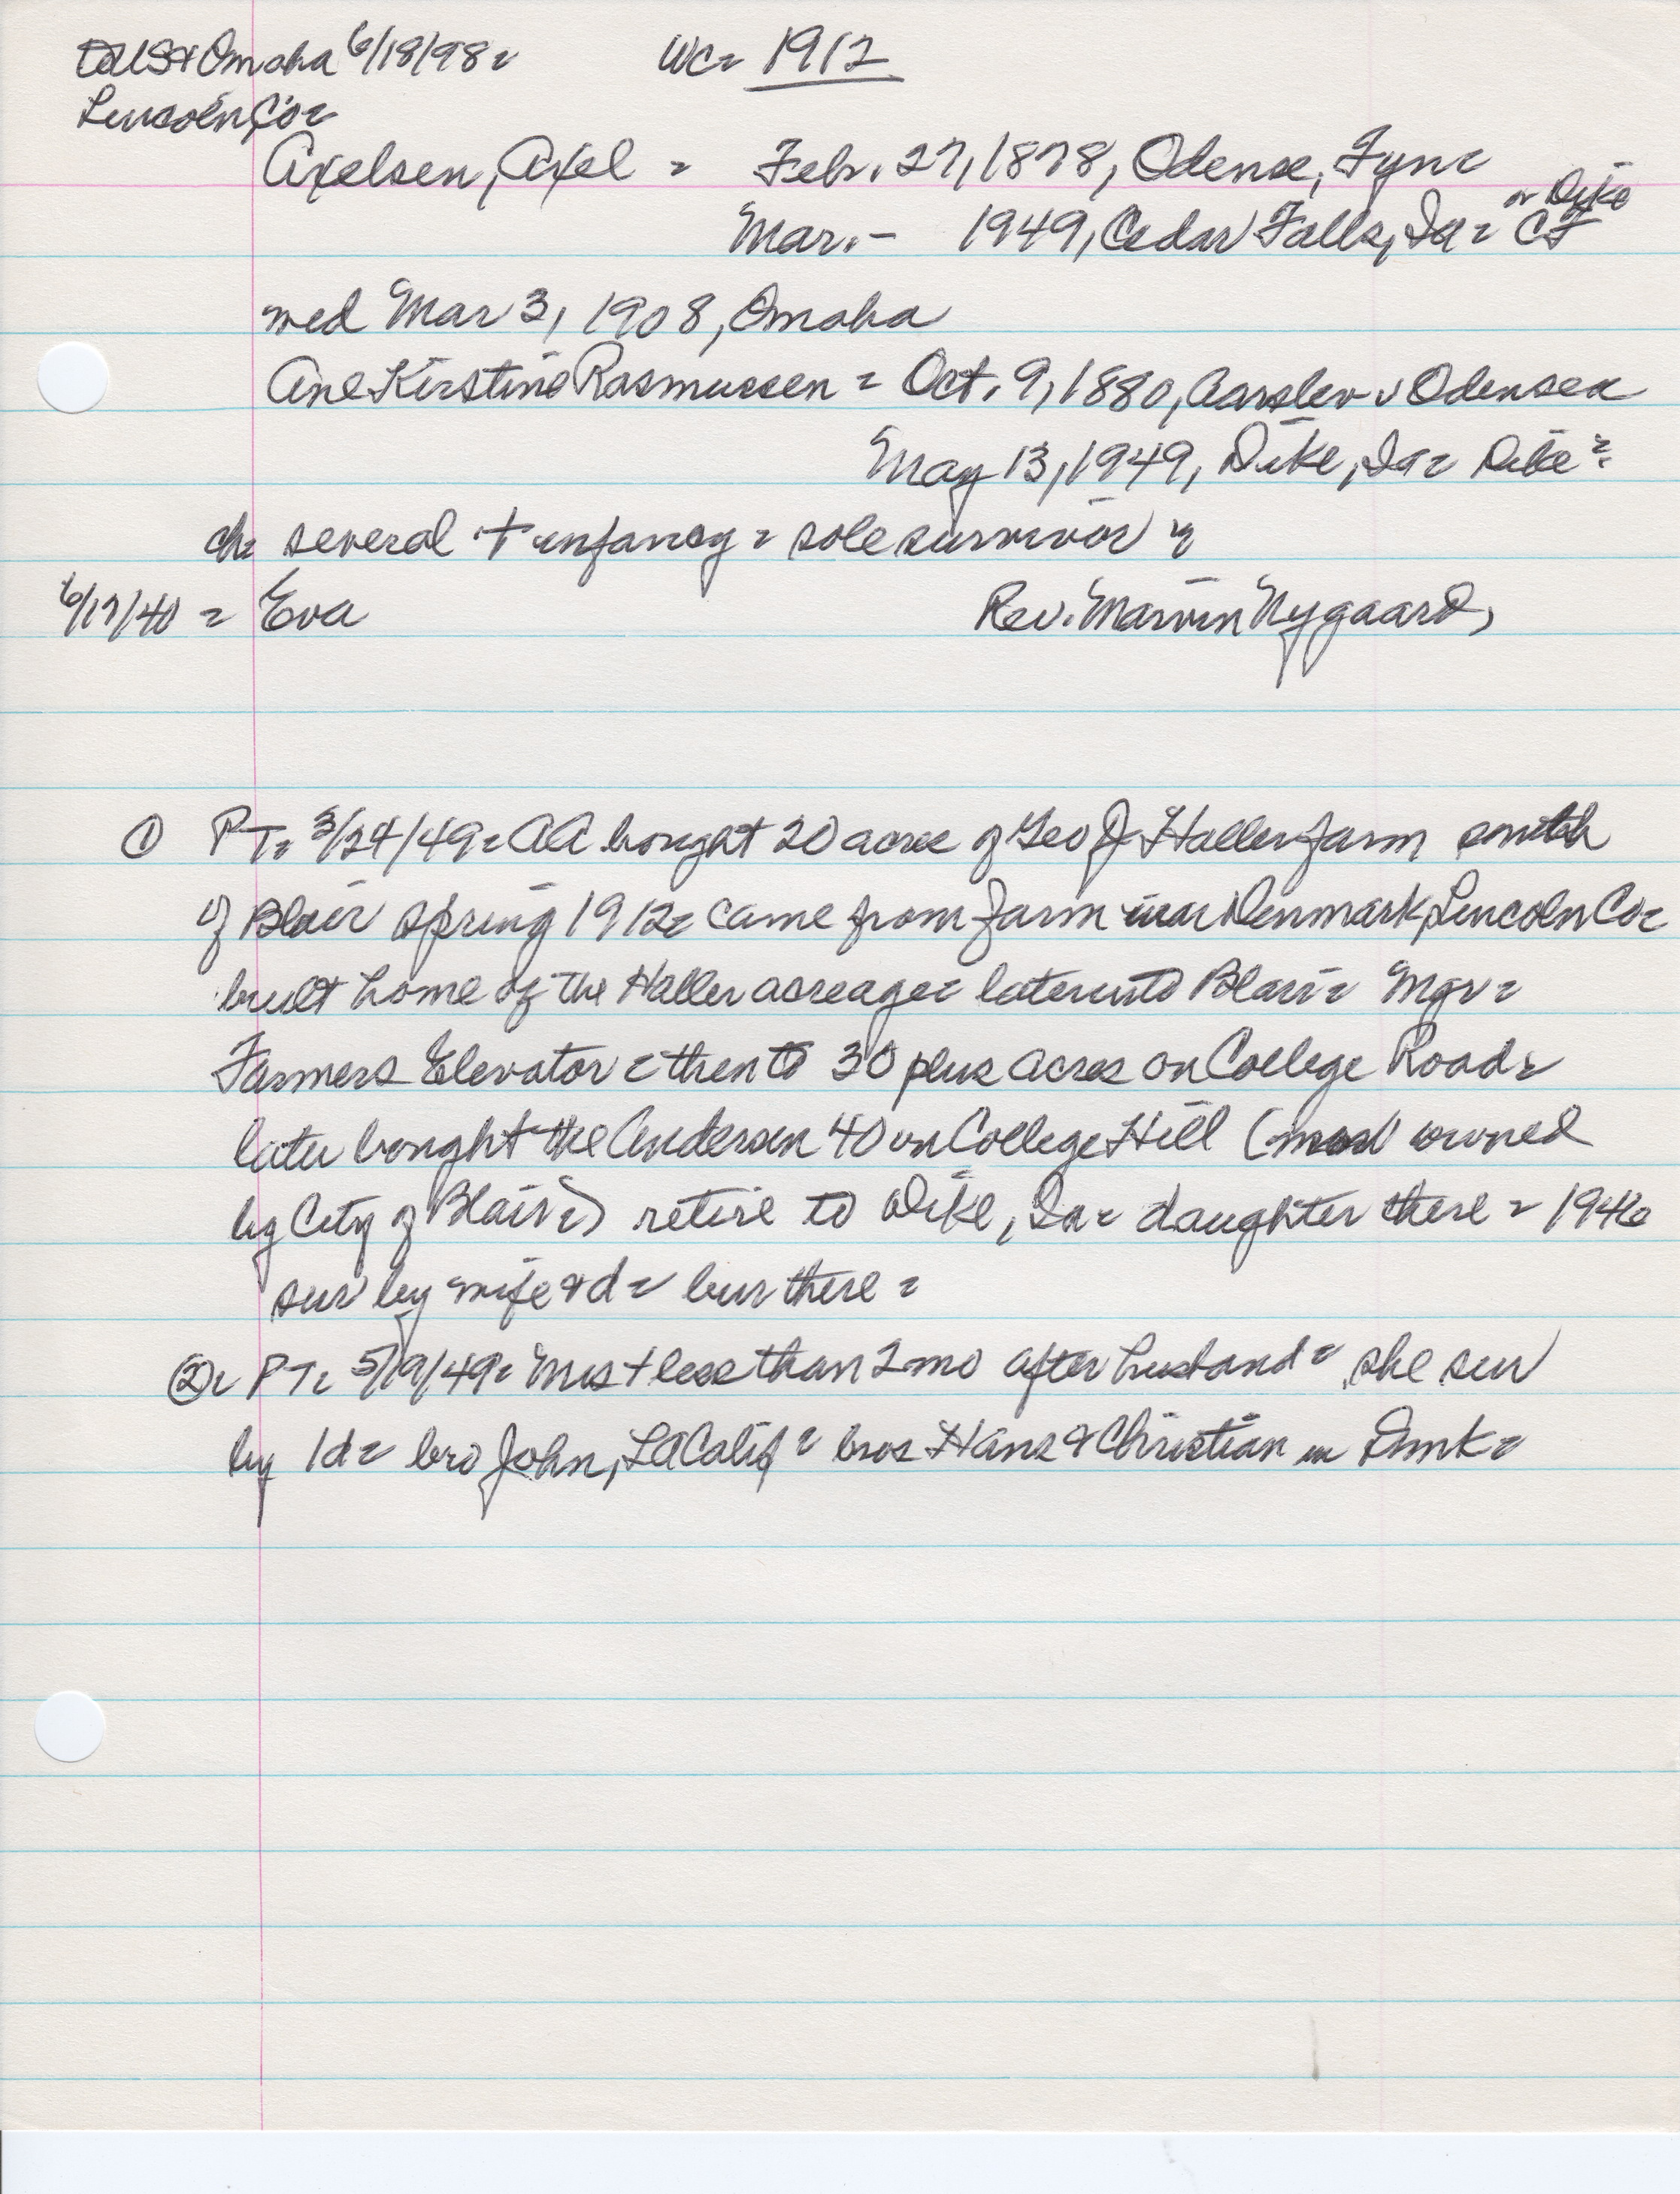 to US & Omaha 6/18/98 = WC= 1912
Lincoln Co =
Axelsen, Axel = Feb. 27, 1878, Odense, Fyn =
or Dike
Mar. - 1949, Cedar Falls, Ia = CF
wed Mar 3, 1908, Omaha
Ane Kirstine Rasmussen = Oct. 9, 1880, Aarslev v Odense =
May 13, 1949, Dike, Ia = Dike =
ch= several + infancy = sole survivor =
6/17/40 = Eva Rev. Marvin Nygaard,
① PT= 3/24/49 = AA bought 20 acres of Geo J Haller farm south
of Blair spring 1912 = came from farm near Denmark, Lincoln Co =
built home of the Haller acreage = later into Blair = Mgr =
Farmers Elevator = then to 30 plus acres on College Road =
later bought the Andersen 40 on College Hill ( owned
by City of Blair =) retire to Dike, Ia = daughter there = 1946
sur by wife & d = bur there =
② = PT= 5/19/49 = Mrs + less than 2 mo after husband = she sur
by 1 d = bro John, LA Calif = bros Hans & Christian in Dmk =